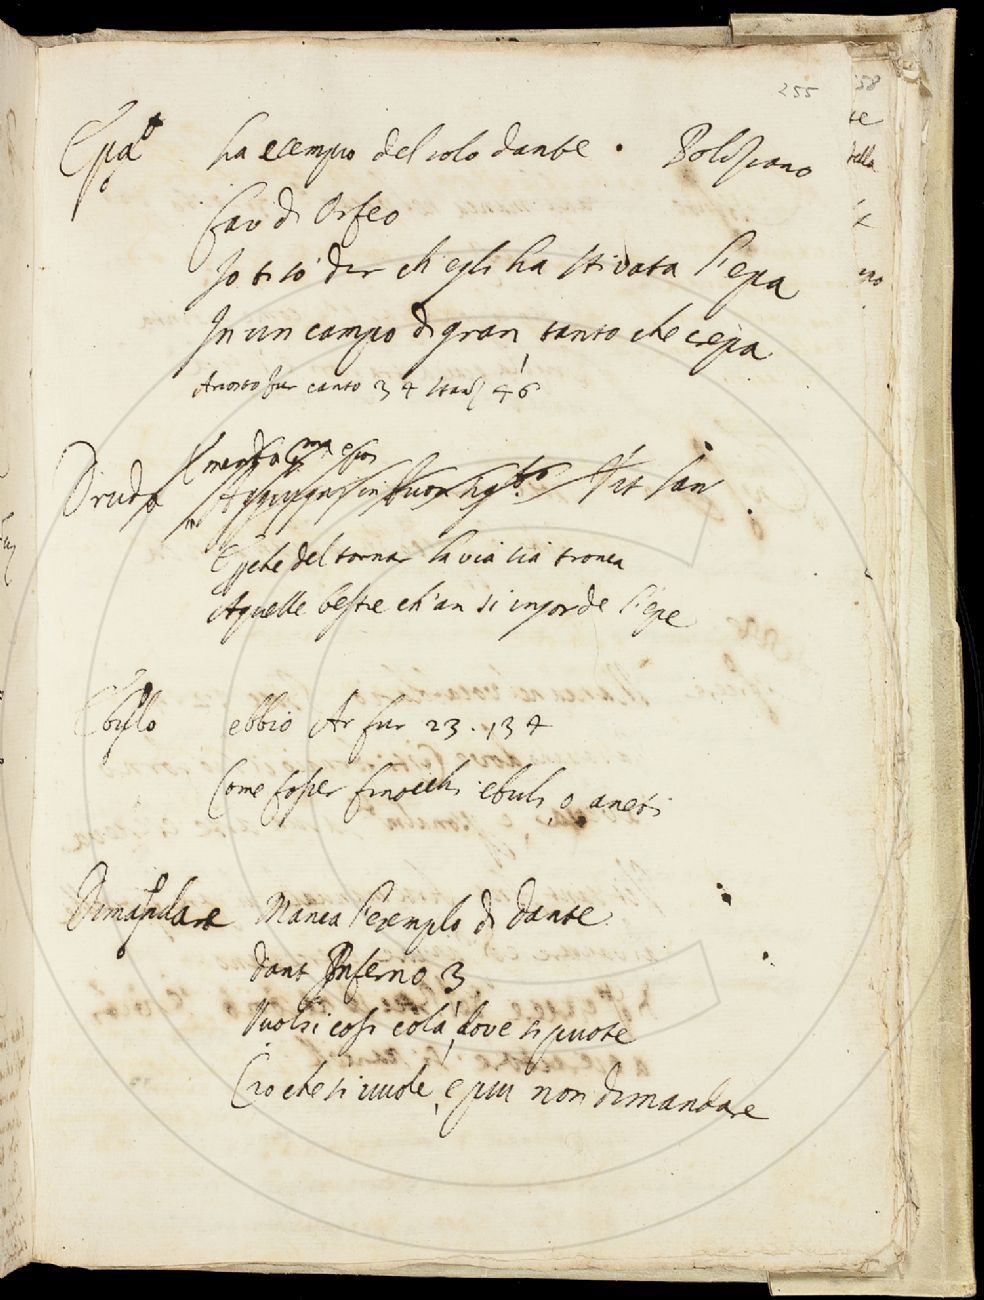 255
Epa ha exempio del solo dante . Poliziano
fav di Orfeo
Io ti so dir ch egli ha stivata l'epa
In un campo di gran, tanto che crepa
Ariosto fur canto 34 stanz 46
Druda
Eche del tornar la via sia tronca
A quelle bestie ch'an si ingorde l'epe
Ebulo ebbio Ar fur 23. 134
Come fosser finocchi ebuli, o aneti
Dimandare Manca l'exemplo di dante
dant Inferno 3
Vuolsi cosi colá, dove si puote
Cio che si vuole, e piu non dimandare
58
te
della
no